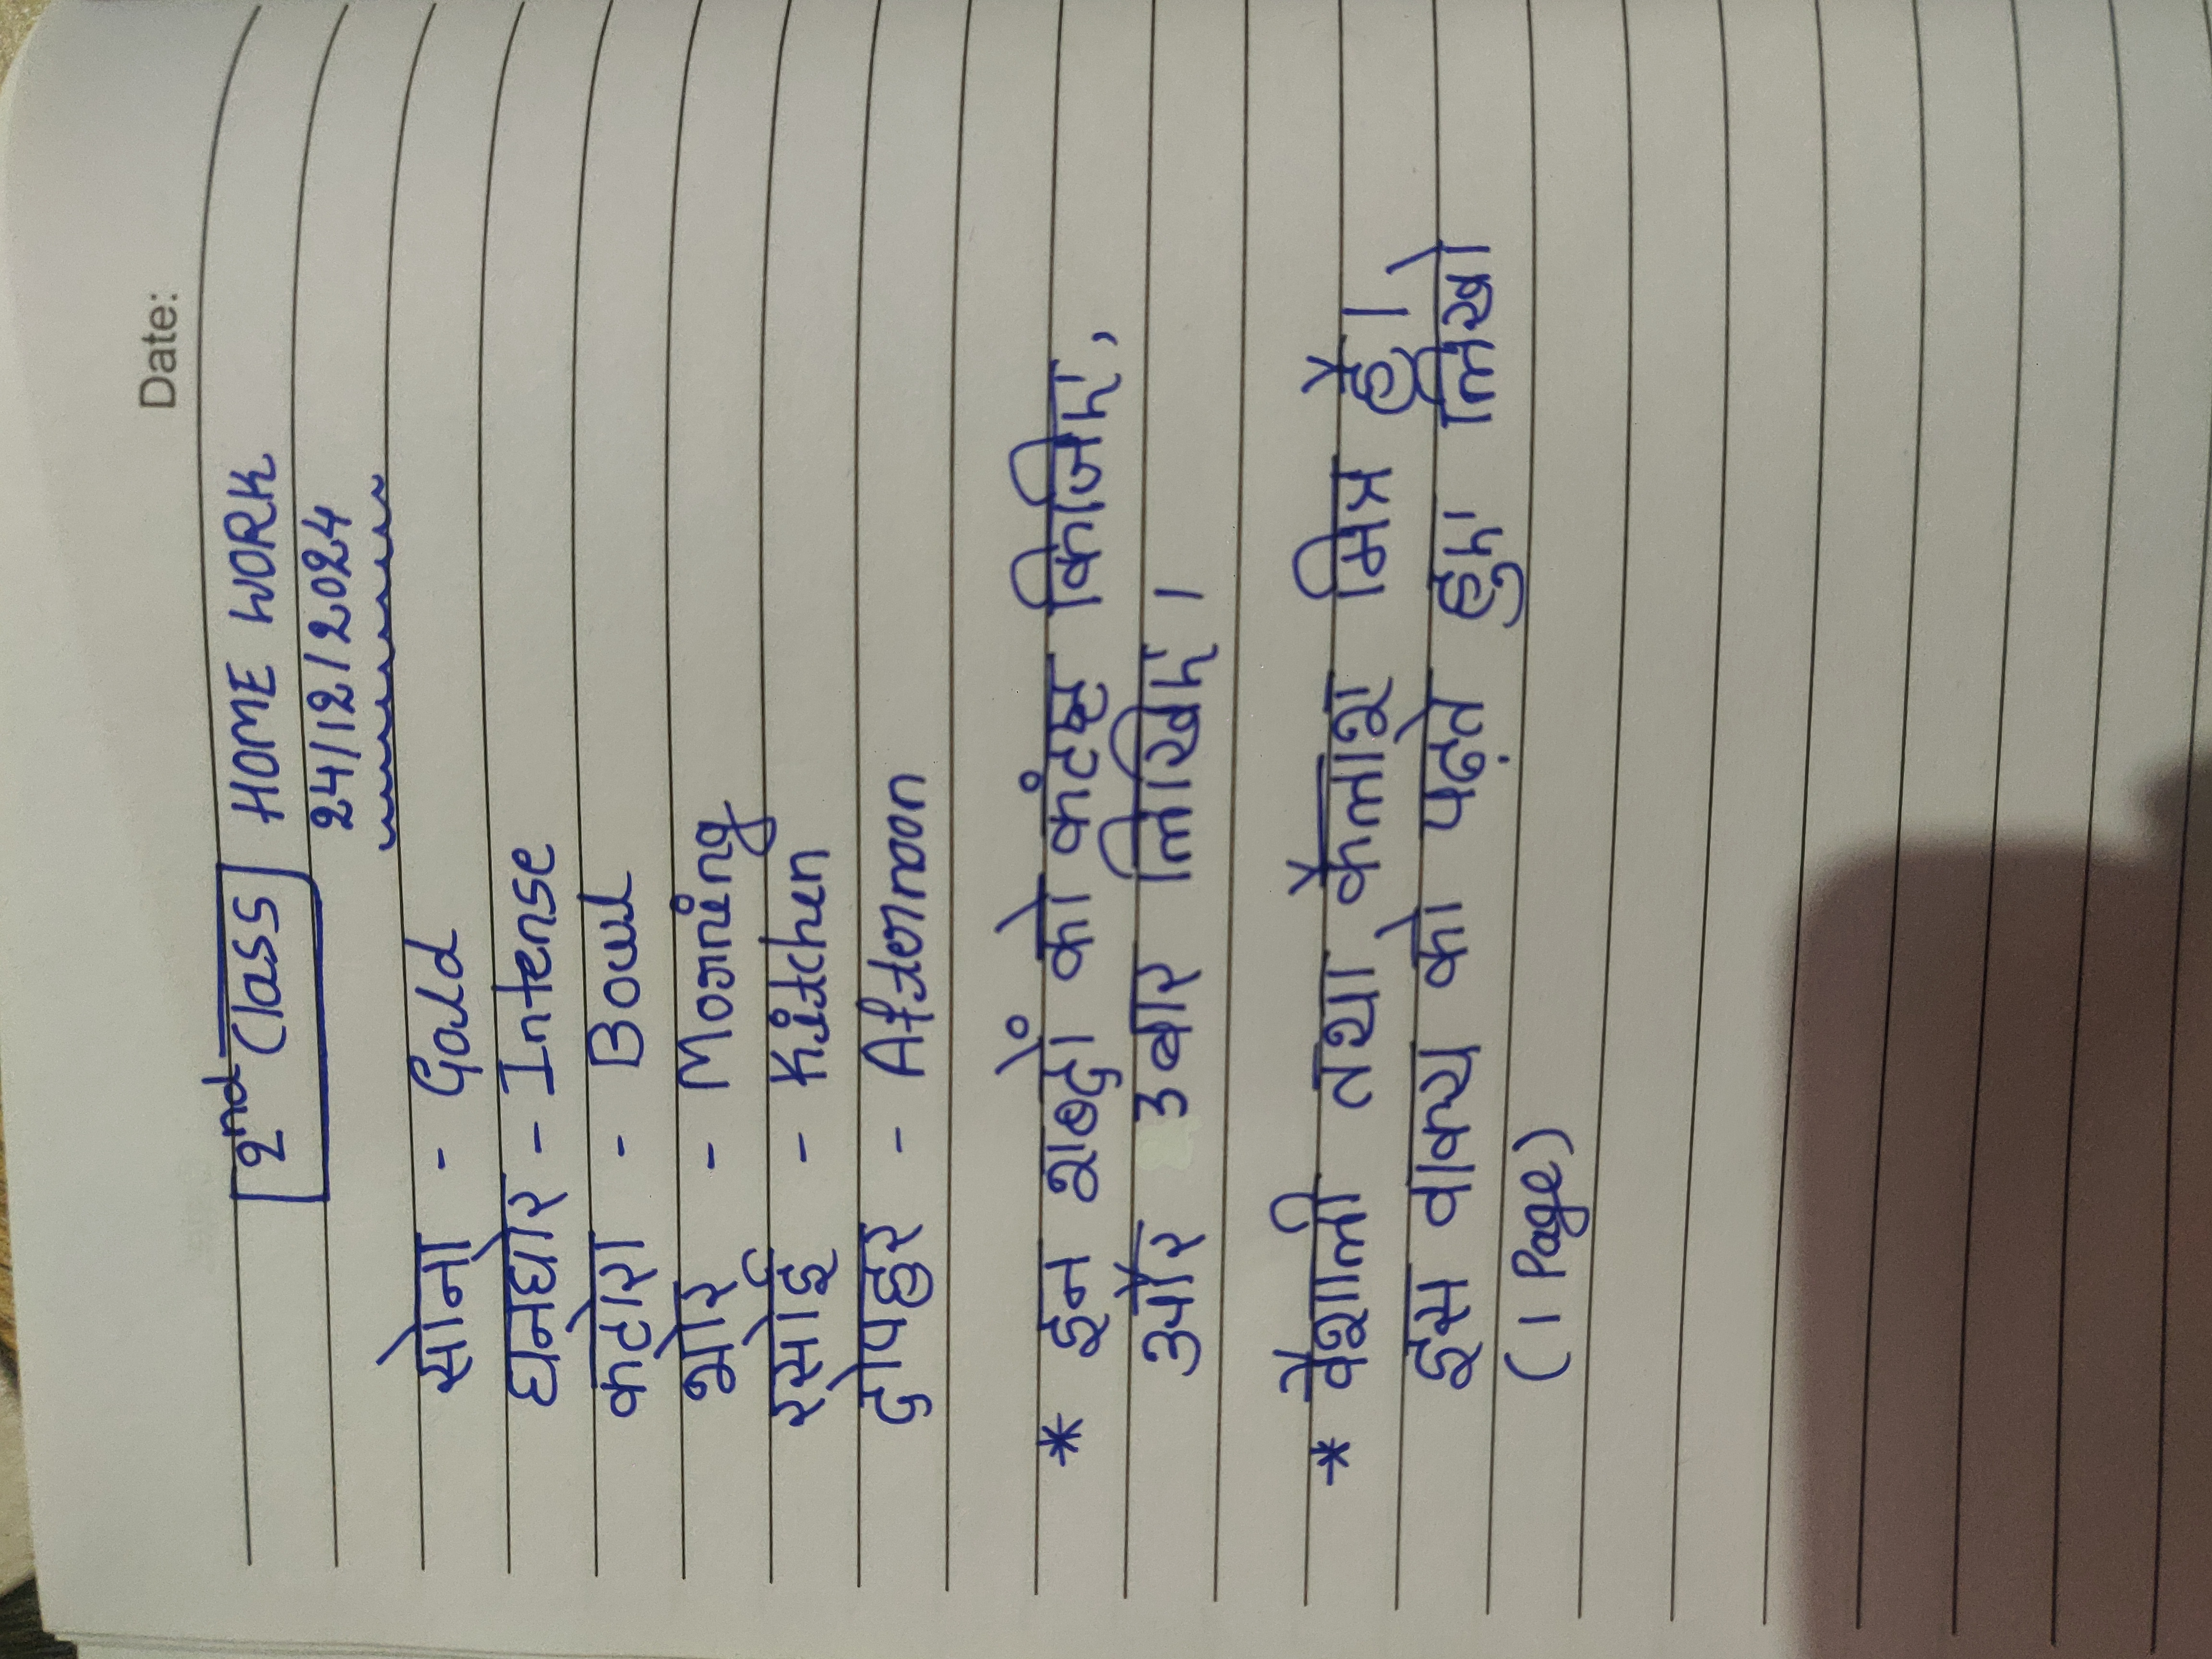 Date:
2nd Class HOME WORK
24/12/2024
सोना - Gold
घनघोर - Intense
कटोरा - Bowl
भोर - Morning
रसोई - Kitchen
दोपहर - Afternoon
* इन शब्दों को कंटस्ट किजिए,
और 3 बार लिखिए।
* वैशाली तथा कैलाश मित्र हैं।,
इस वाक्य को पढ़ते हुए लिखो
(1 Page)